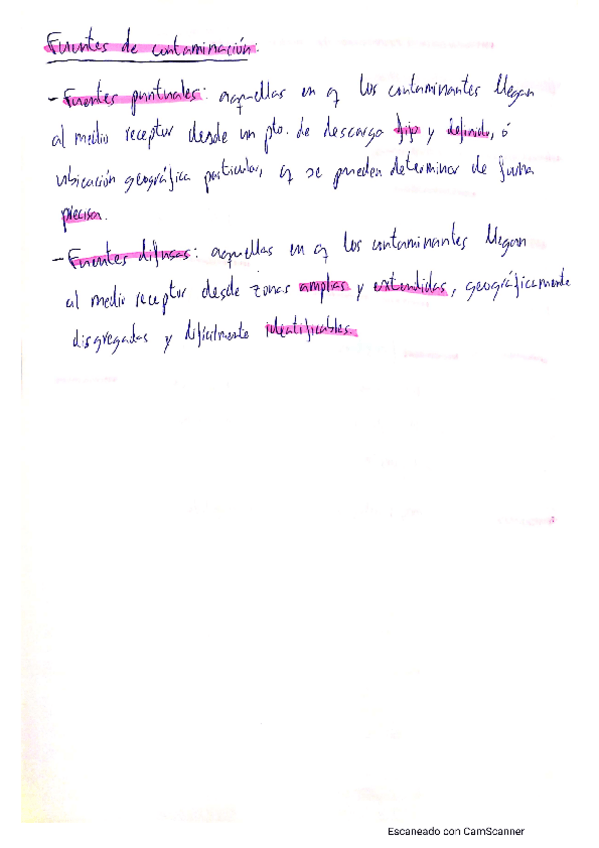 Fuentes de contaminación:
- Fuentes puntuales: aquellas en q los contaminantes llegan
al medio receptor desde un pto. de descarga fijo y definido, ó
ubicación geográfica particular, q se pueden determinar de forma
precisa.
- Fuentes difusas: aquellas en q los contaminantes llegan
al medio receptor desde zonas amplias y extendidas, geográficamente
disgregadas y dificilmente identificables.
Escaneado con CamScanner